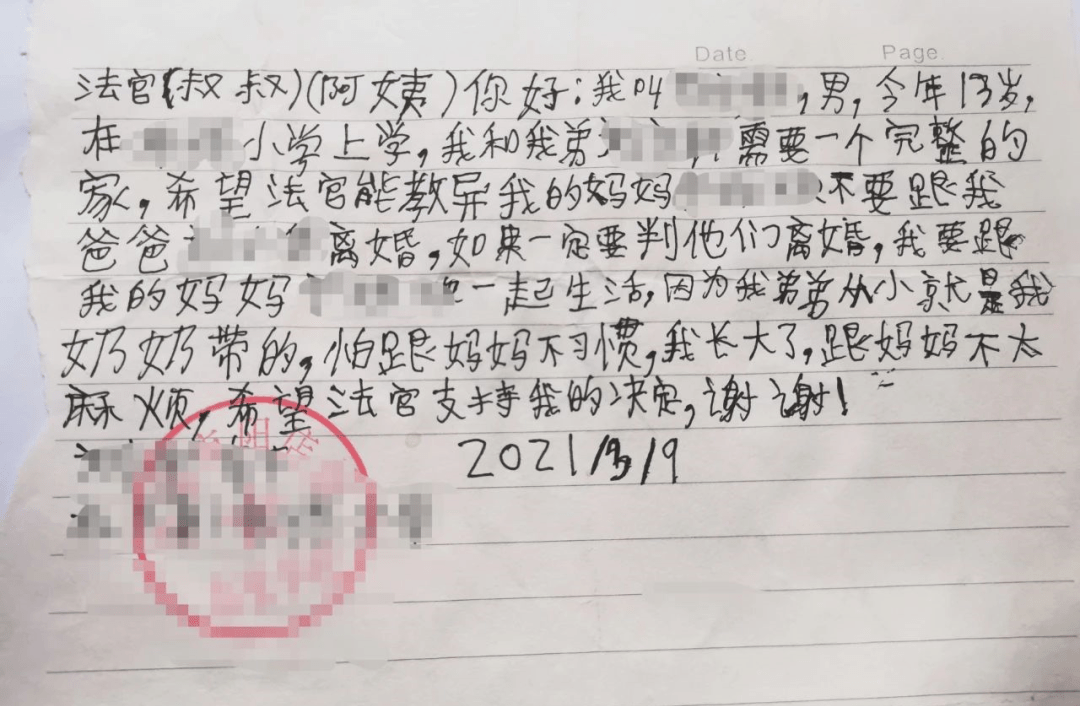 Date Page
法官(叔叔)(阿姨)你好:我叫 ,男,今年13岁,
在 小学上学,我和我弟 需要一个完整的
家,希望法官能教导我的妈妈 不要跟我
爸爸 离婚,如果一定要判他们离婚,我要跟
我的妈妈 一起生活,因为我弟弟从小就是我
奶奶带的,怕跟妈妈不习惯,我长大了,跟妈妈不太
麻烦,希望法官支持我的决定,谢谢!
2021/3/9